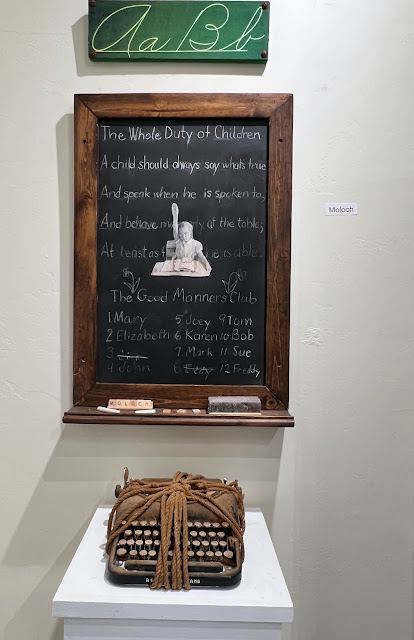 Aa Bb
The Whole Duty of Children
A child should always say whats true
And speak when he is spoken to,
And behave at the table;
At least as he is able.
Moloch
The Good Manners Club
1 Mary 5 Joey 9 Tom
2 Elizabeth 6 Karen 10 Bob
3 7. Mark 11 Sue
4 John 8 12 Freddy
MOLOCH